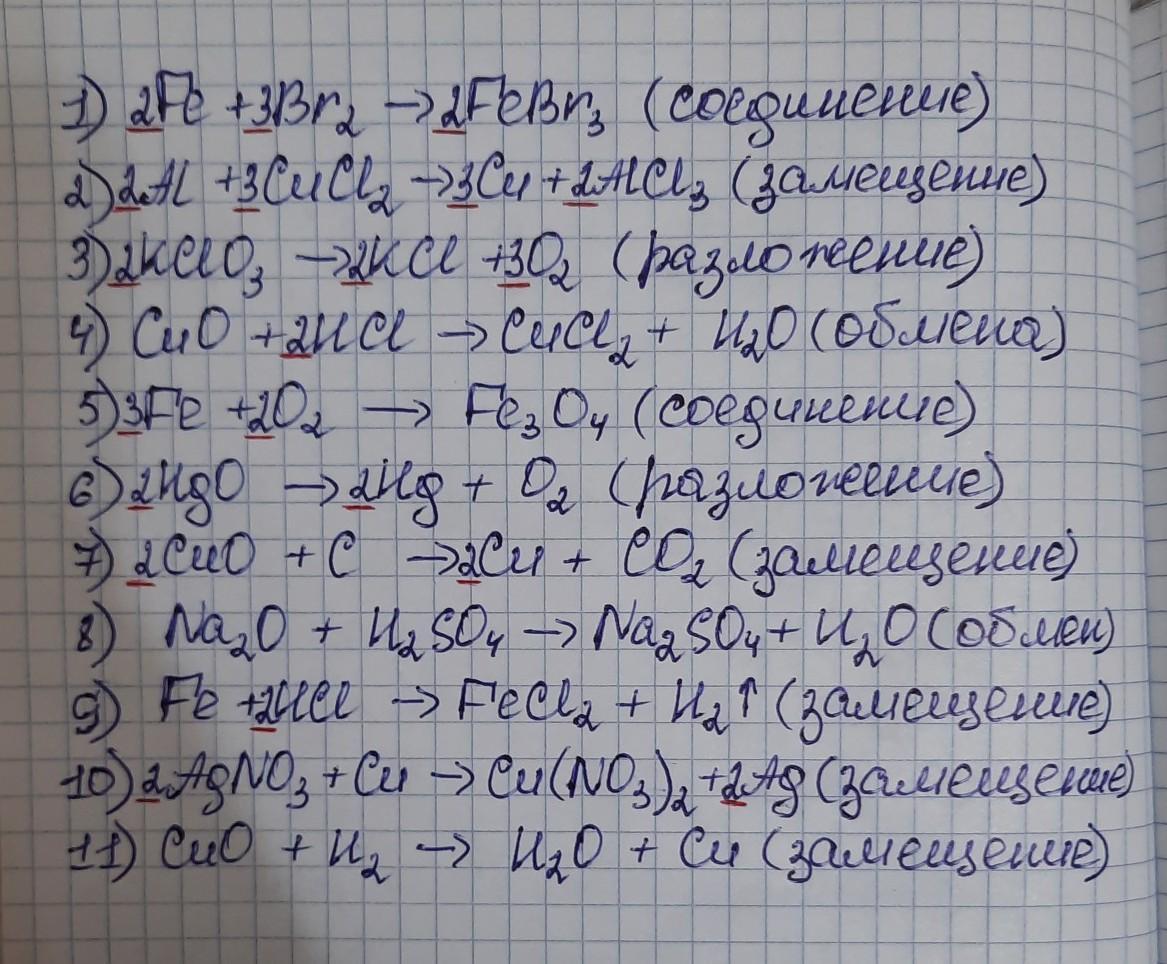 1) 2Fe + 3Br₂ → 2FeBr₃ (соединение)
2) 2Al + 3CuCl₂ → 3Cu + 2AlCl₃ (замещение)
3) 2KClO₃ → 2KCl + 3O₂ (разложение)
4) CuO + 2HCl → CuCl₂ + H₂O (обмена)
5) 3Fe + 2O₂ → Fe₃O₄ (соединение)
6) 2HgO → 2Hg + O₂ (разложение)
7) 2CuO + C → 2Cu + CO₂ (замещение)
8) Na₂O + H₂SO₄ → Na₂SO₄ + H₂O (обмен)
9) Fe + 2HCl → FeCl₂ + H₂↑ (замещение)
10) 2AgNO₃ + Cu → Cu(NO₃)₂ + 2Ag (замещение)
11) CuO + H₂ → H₂O + Cu (замещение)